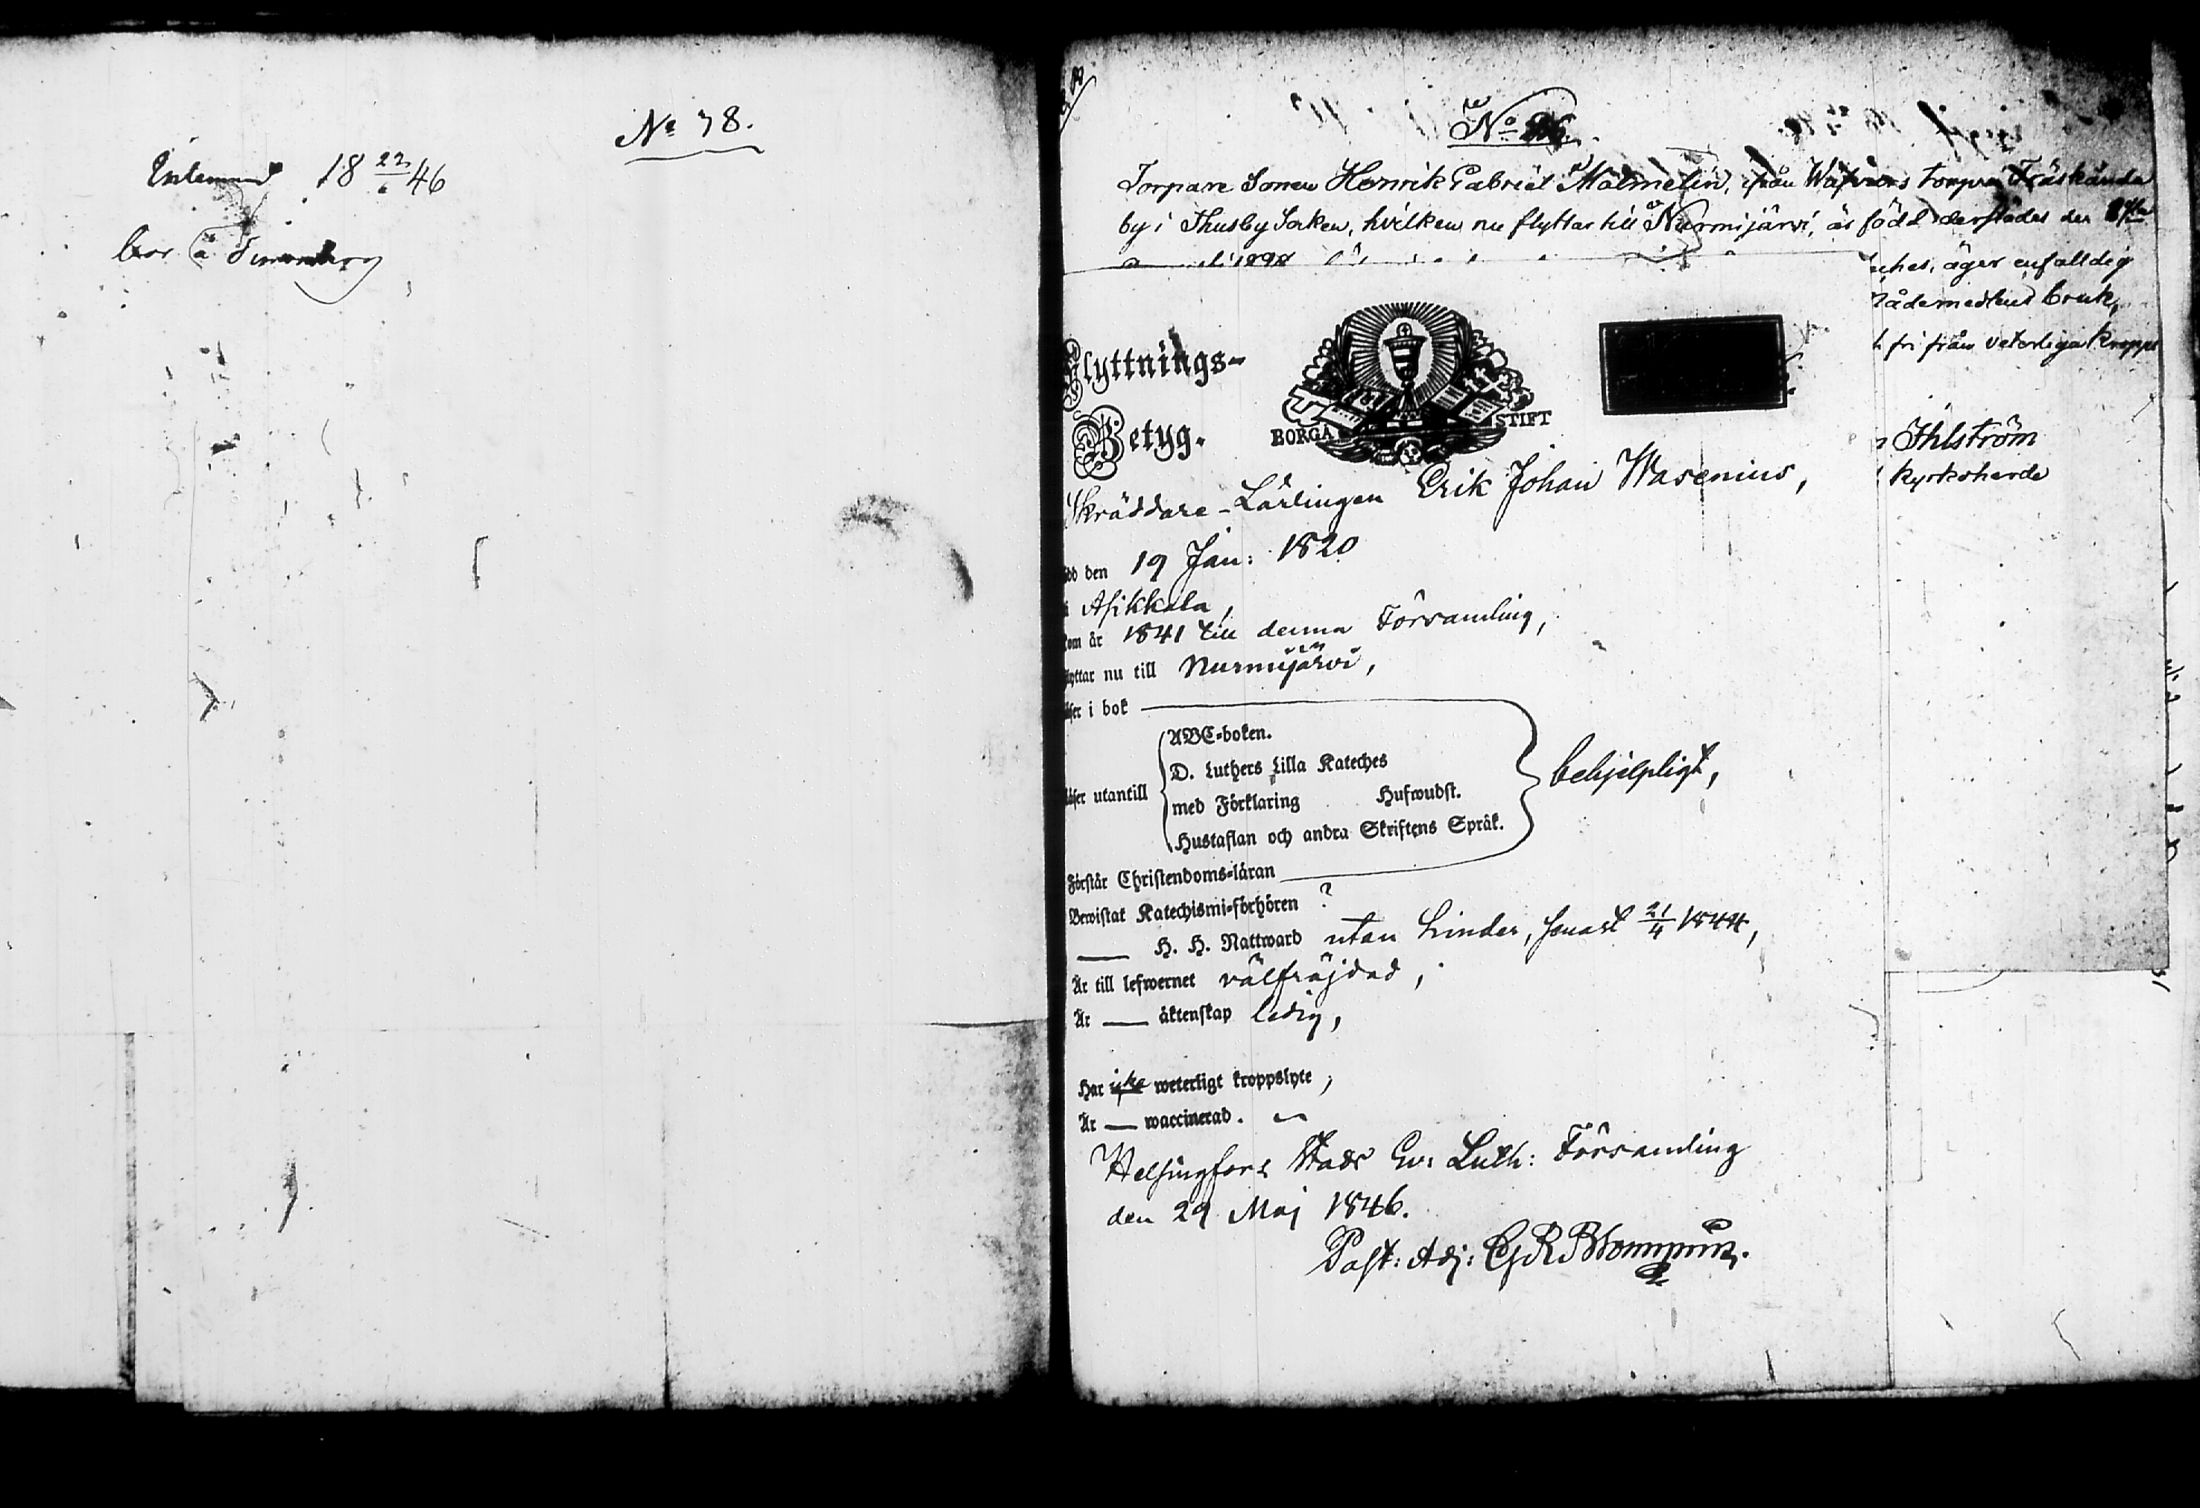 No 78.
18 22/6 46
bor å
No
Torpare Sonen Henrik Gabriel Malmelin, ifrån torp i Träskända
by i Thusby Socken, hvilken nu flyttar till Nurmijärvi, är född derstädes den
äger enfalldig
Nådemedlens bruk,
fri från veterliga kropps
Flyttnings-
Betyg.
BORGÅ STIFT
Ihlström
Kyrkoherde
Skräddare-Lärlingen Erik Johan Wasenius,
född den 19 Jan: 1820
i Asikkala,
kom år 1841 till denna Församling,
flyttar nu till Nurmijärvi,
läser i bok
ABC-boken.
D. Luthers Lilla Kateches
läser utantill
med Förklaring Hufwudst.
behjelpligt,
Hustaflan och andra Skriftens Språk.
Förstår Christendoms-läran
Bewistat Katechismi-förhören ?
— H. H. Nattward utan hinder, senast 21/4 1844,
Är till lefwernet välfräjdad,
Är — äktenskap ledig,
Har icke weterligt kroppslyte,
Är — waccinerad.
Helsingfors Stads Ev: Luth: Församling
den 29 Maj 1846.
Past: Adj: